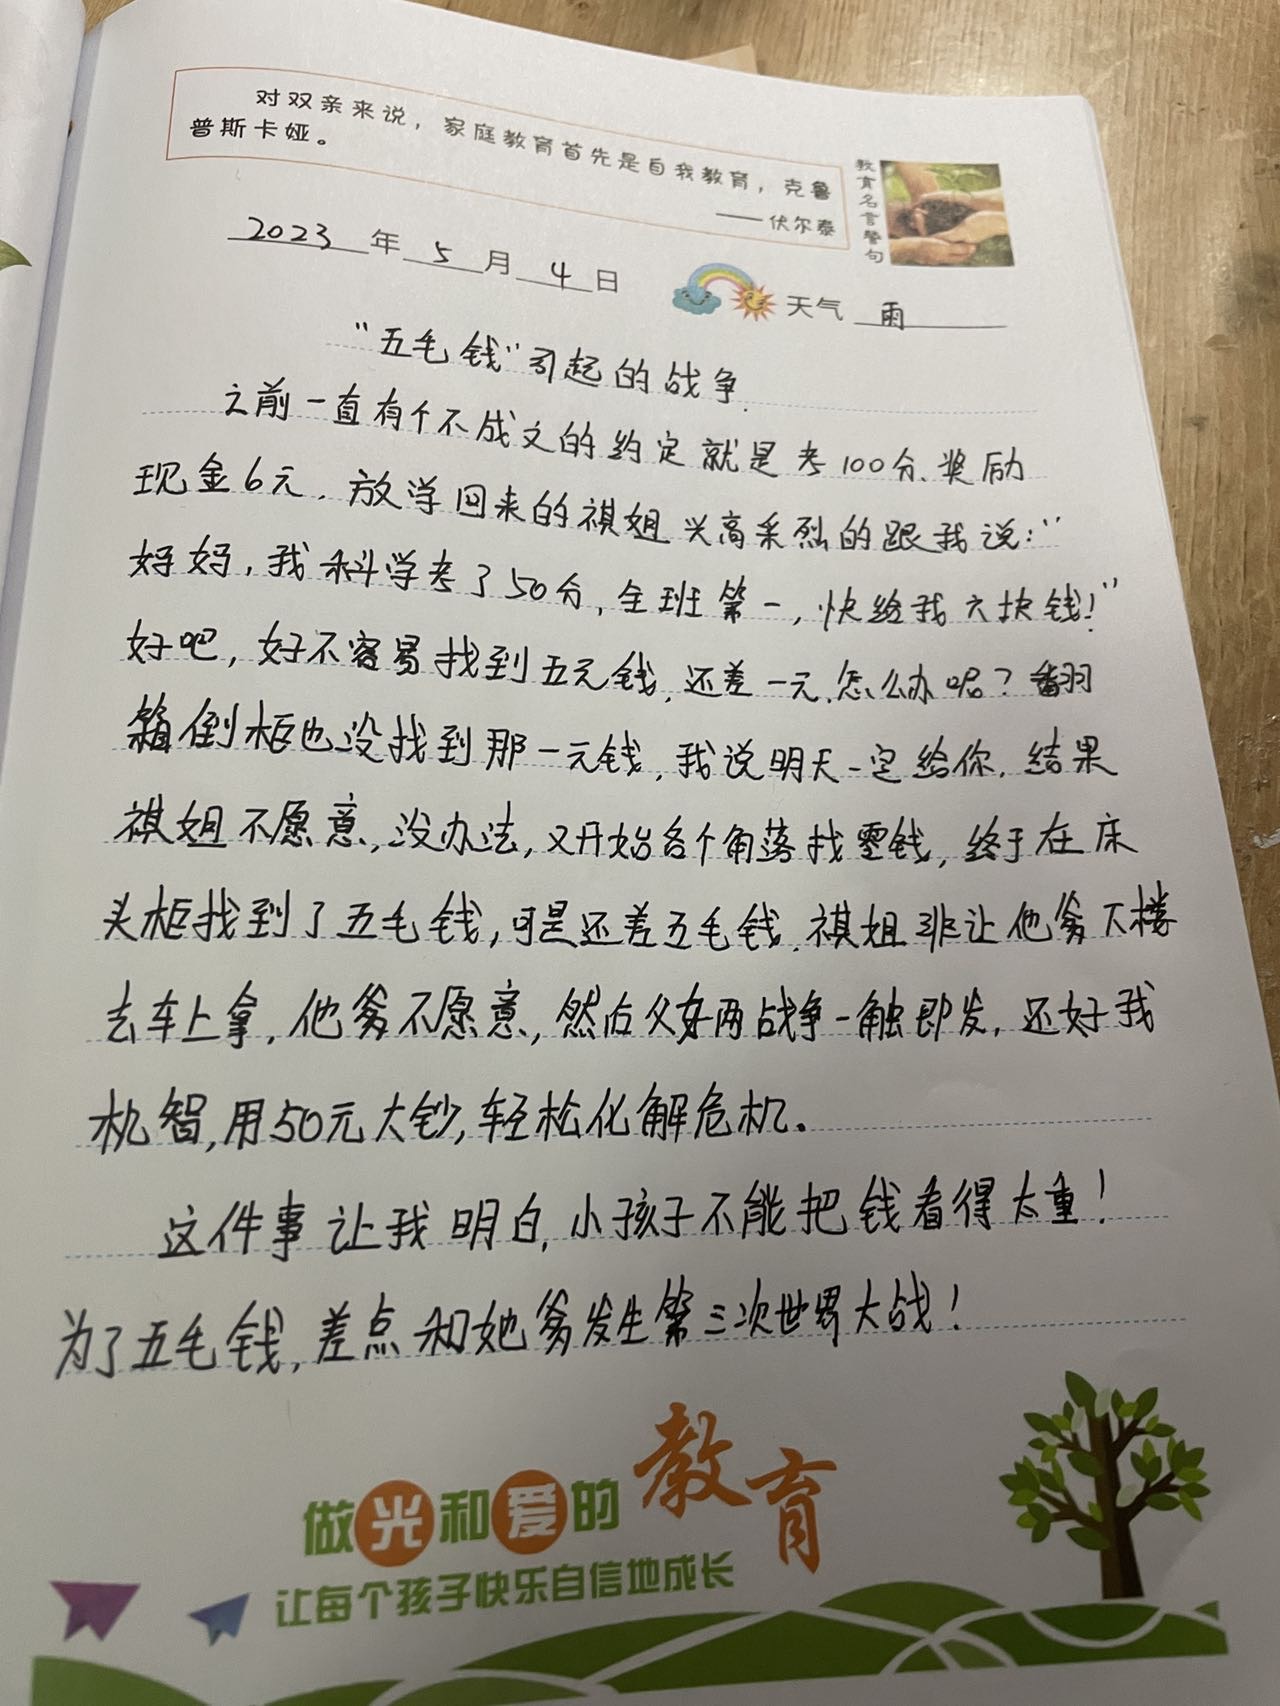 对双亲来说，家庭教育首先是自我教育，克鲁
普斯卡娅。
——伏尔泰
教育名言警句
2023年5月4日
天气 雨
“五毛钱”引起的战争.
之前一直有个不成文的约定就是考100分、奖励
现金6元，放学回来的祺姐兴高采烈的跟我说：“
妈妈，我科学考了50分，全班第一，快给我六块钱！”
好吧，好不容易找到五元钱，还差一元，怎么办呢？翻
箱倒柜也没找到那一元钱，我说明天一定给你，结果
祺姐不愿意，没办法，又开始各个角落找零钱，终于在床
头柜找到了五毛钱，可是还差五毛钱，祺姐非让他爹下楼
去车上拿，他爹不愿意，然后父女两战争一触即发，还好我
机智，用50元大钞，轻松化解危机。
这件事让我明白，小孩子不能把钱看得太重！
为了五毛钱，差点和她爹发生第三次世界大战！
做光和爱的教育
让每个孩子快乐自信地成长